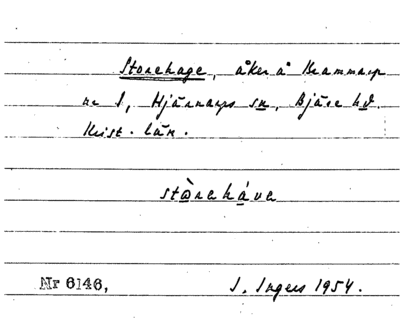 Storehage, åker å Brammarp
nr 1, Hjärnarps sn, Bjäre hd.
Krist. län.
stòreháve
Nr 6146,
I. Ingers 1954.